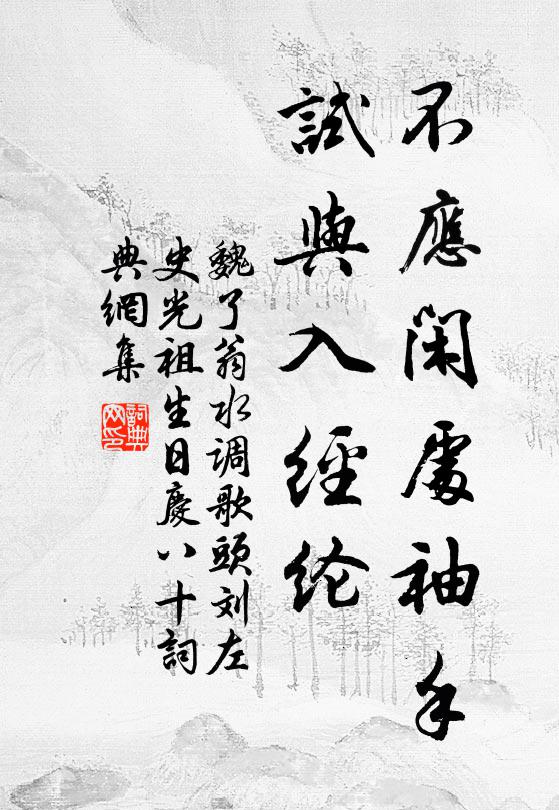 不應閑處袖手
試與入經纶
魏了翁水调歌頭刘左
史光祖生日慶八十詞
典網集
詞典网印